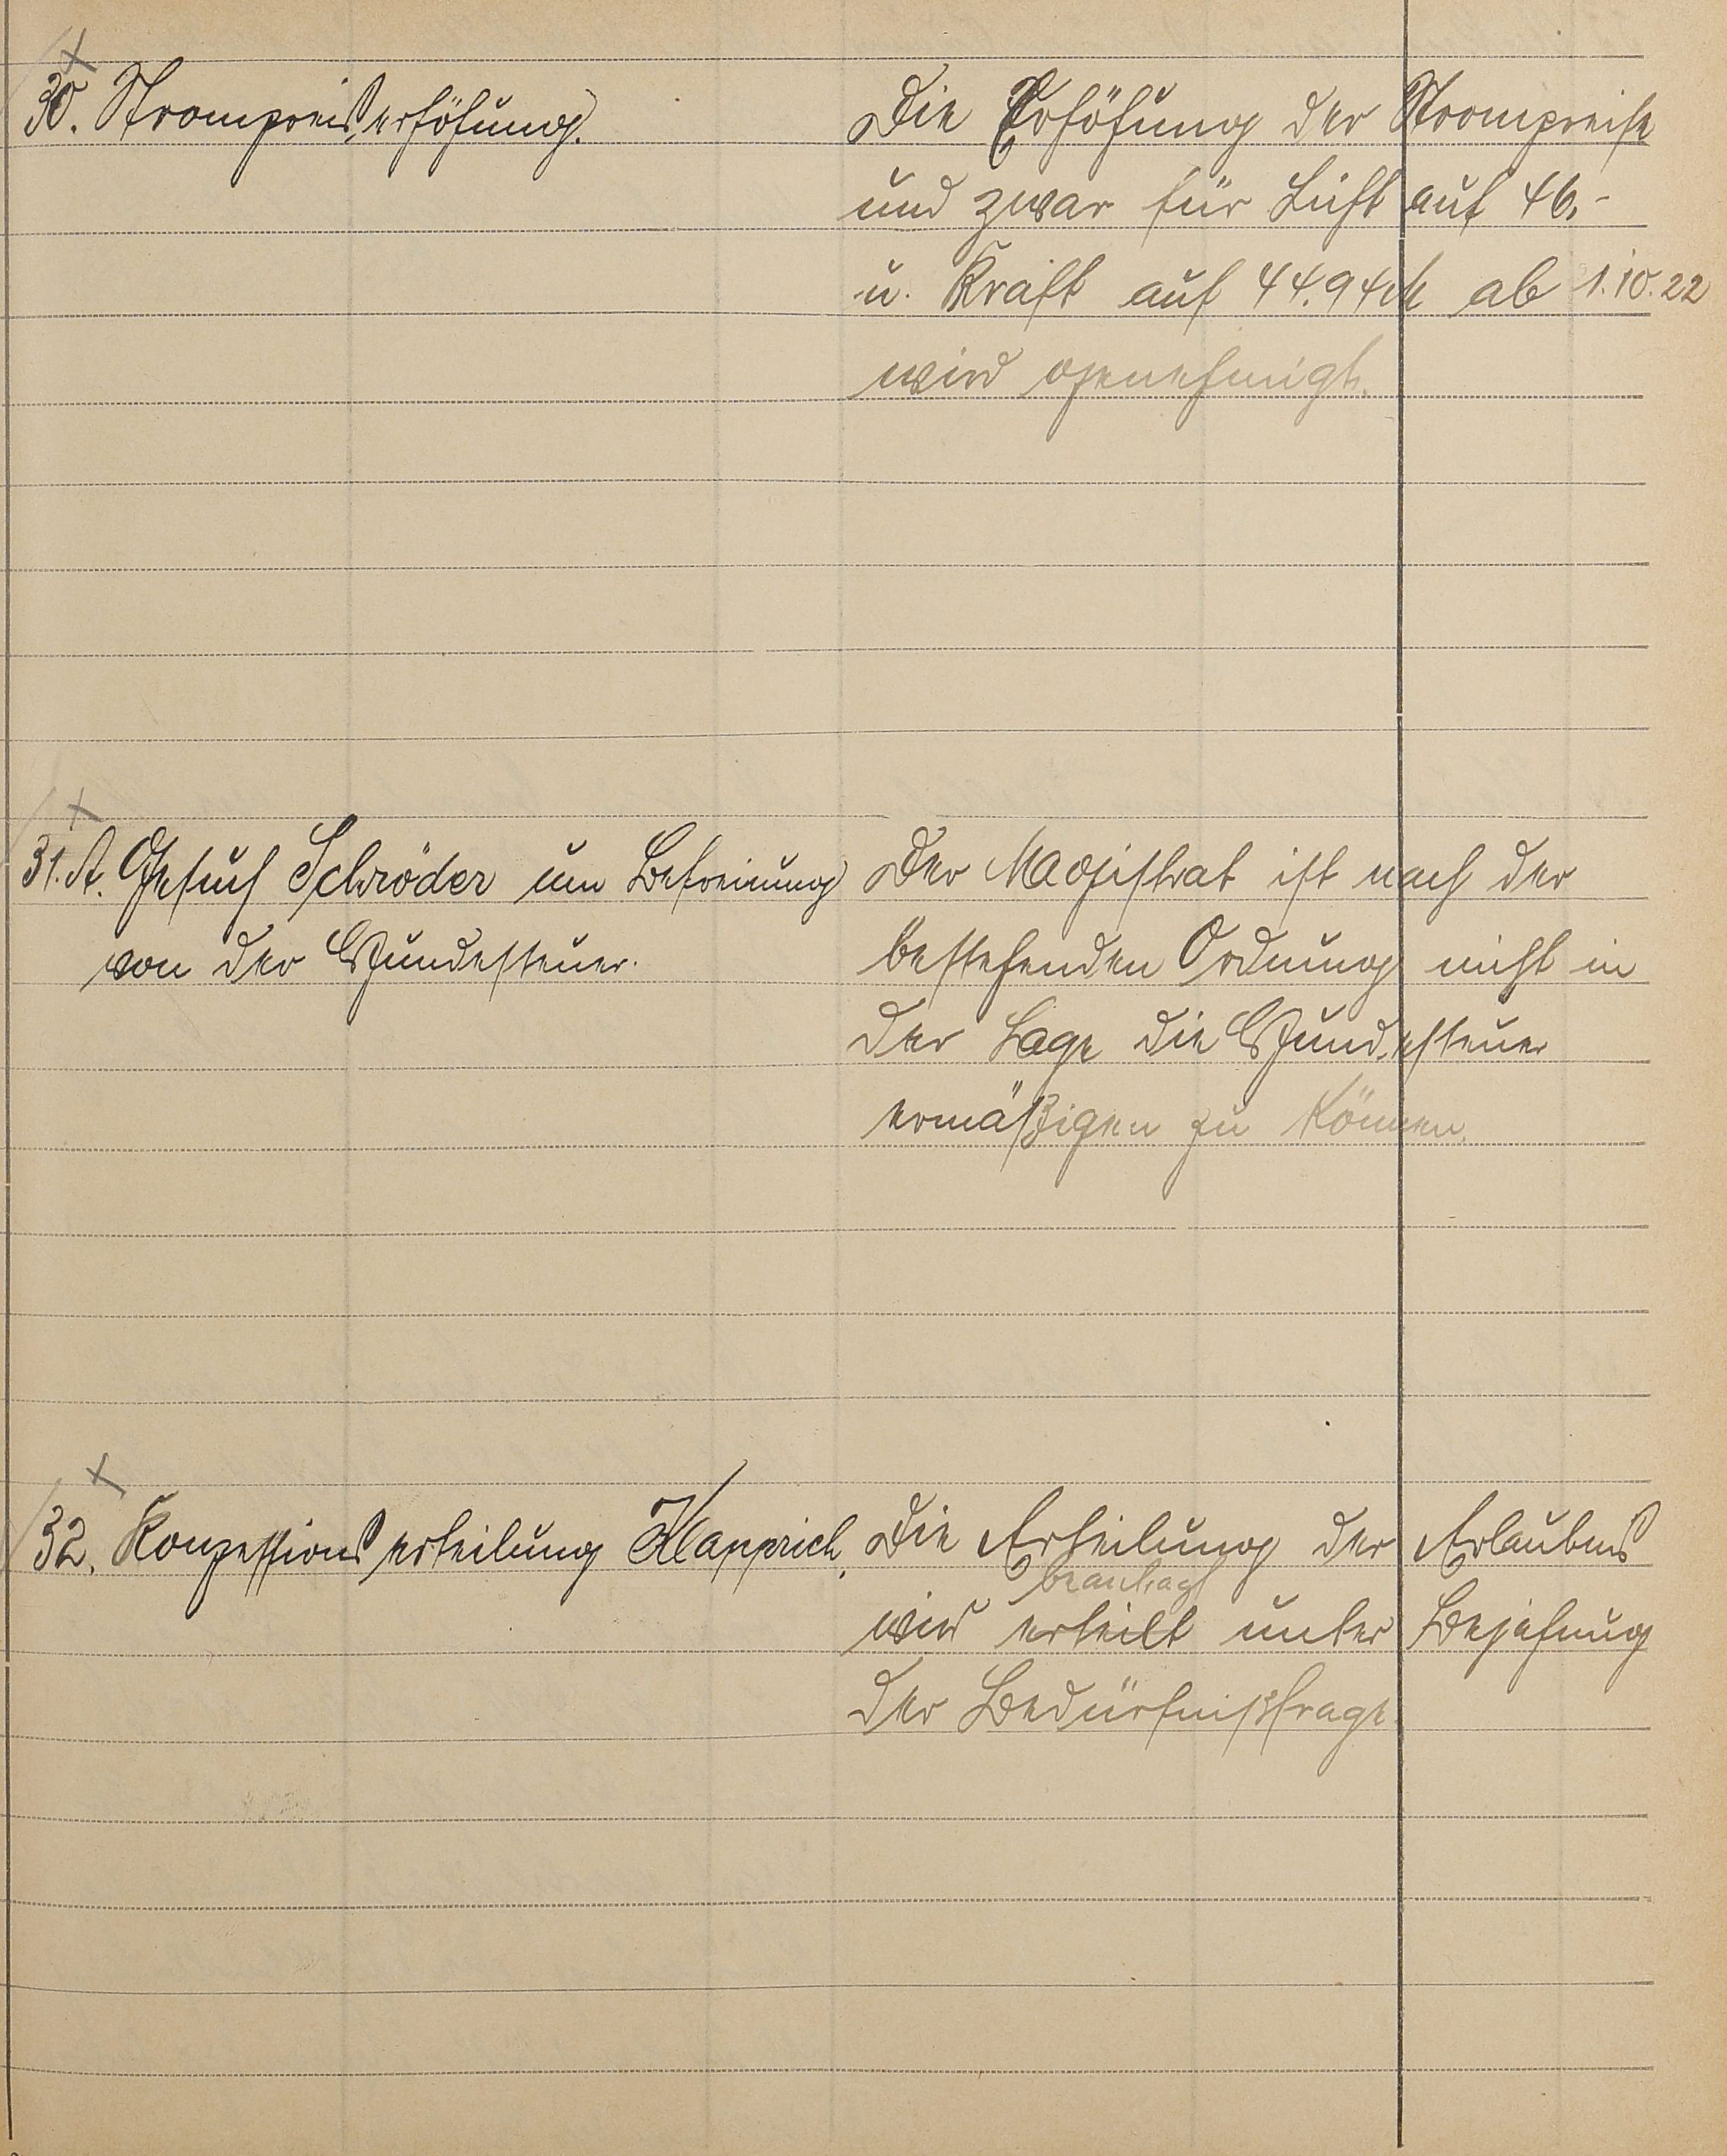 30. Strompreiserhöhung.
Die Erhöhung der Strompreise
und zwar für Licht auf 46.-
u. Kraft auf 44.94 M ab 1.10.22
wird genehmigt.
31. A. Gesuch Schröder um Befreiung
von der Hundesteuer.
Der Magistrat ist nach der
bestehenden Ordnung nicht in
der Lage die Hundesteuer
ermäßigen zu können.
32. Konzessionserteilung Klapprich.
Die Erteilung der Erlaubnis
beantragt
wird erteilt unter Bejahung
der Bedürfnißfrage.